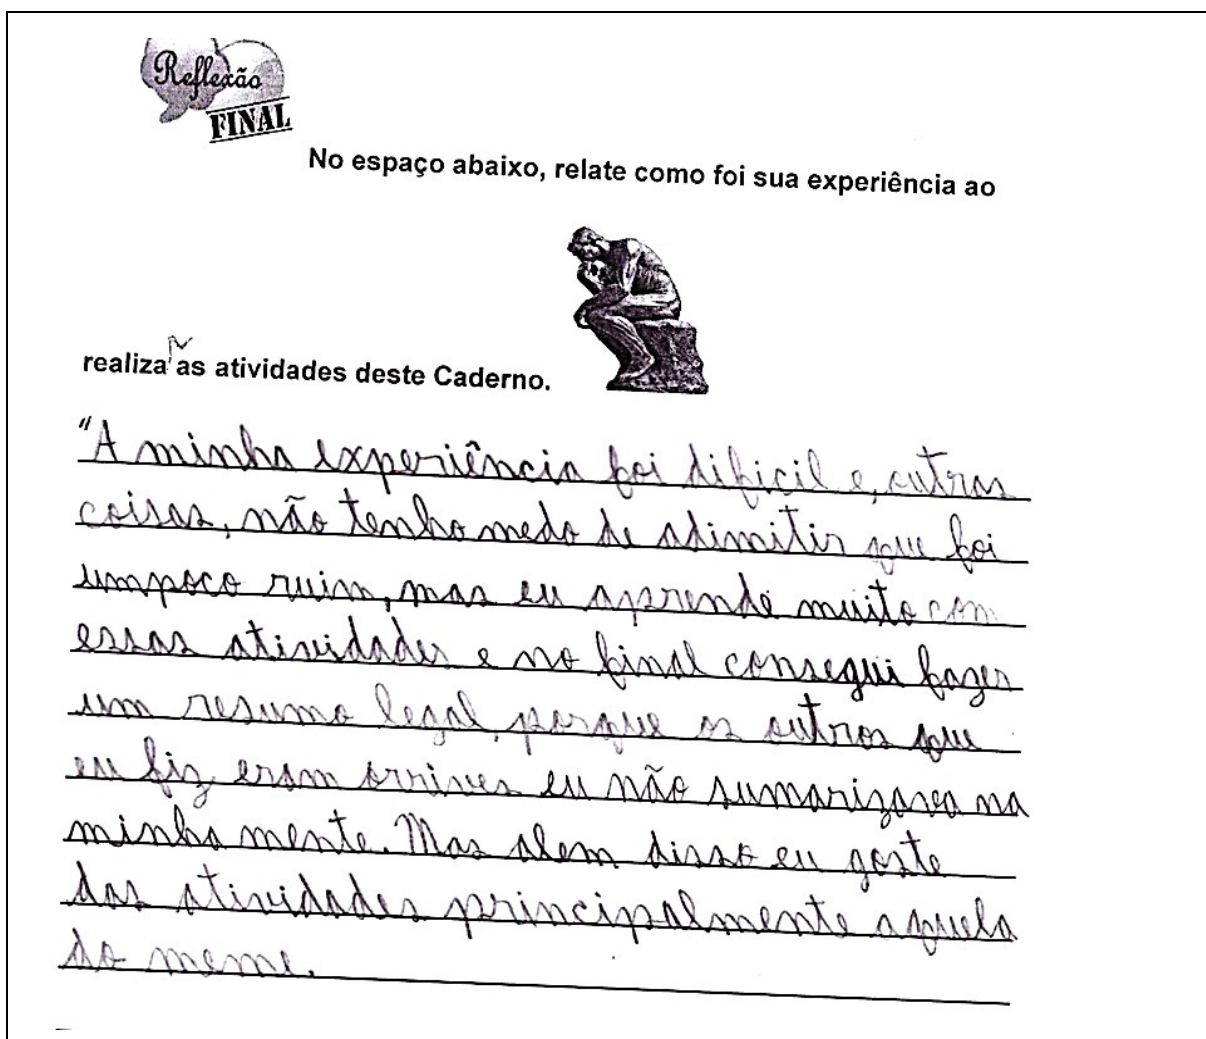 Reflexão
FINAL
No espaço abaixo, relate como foi sua experiência ao
r
realiza as atividades deste Caderno.
"A minha experiência foi dificil e, outras
coisas, não tenho medo de adimitir que foi
umpoco ruim, mas eu aprende muito com
essas atividades e no final consegui fazer
um resumo legal, porque os outros que
eu fiz eram orrives eu não sumarizava na
minha mente. Mas alem disso eu goste
das atividades principalmente aquela
do meme.